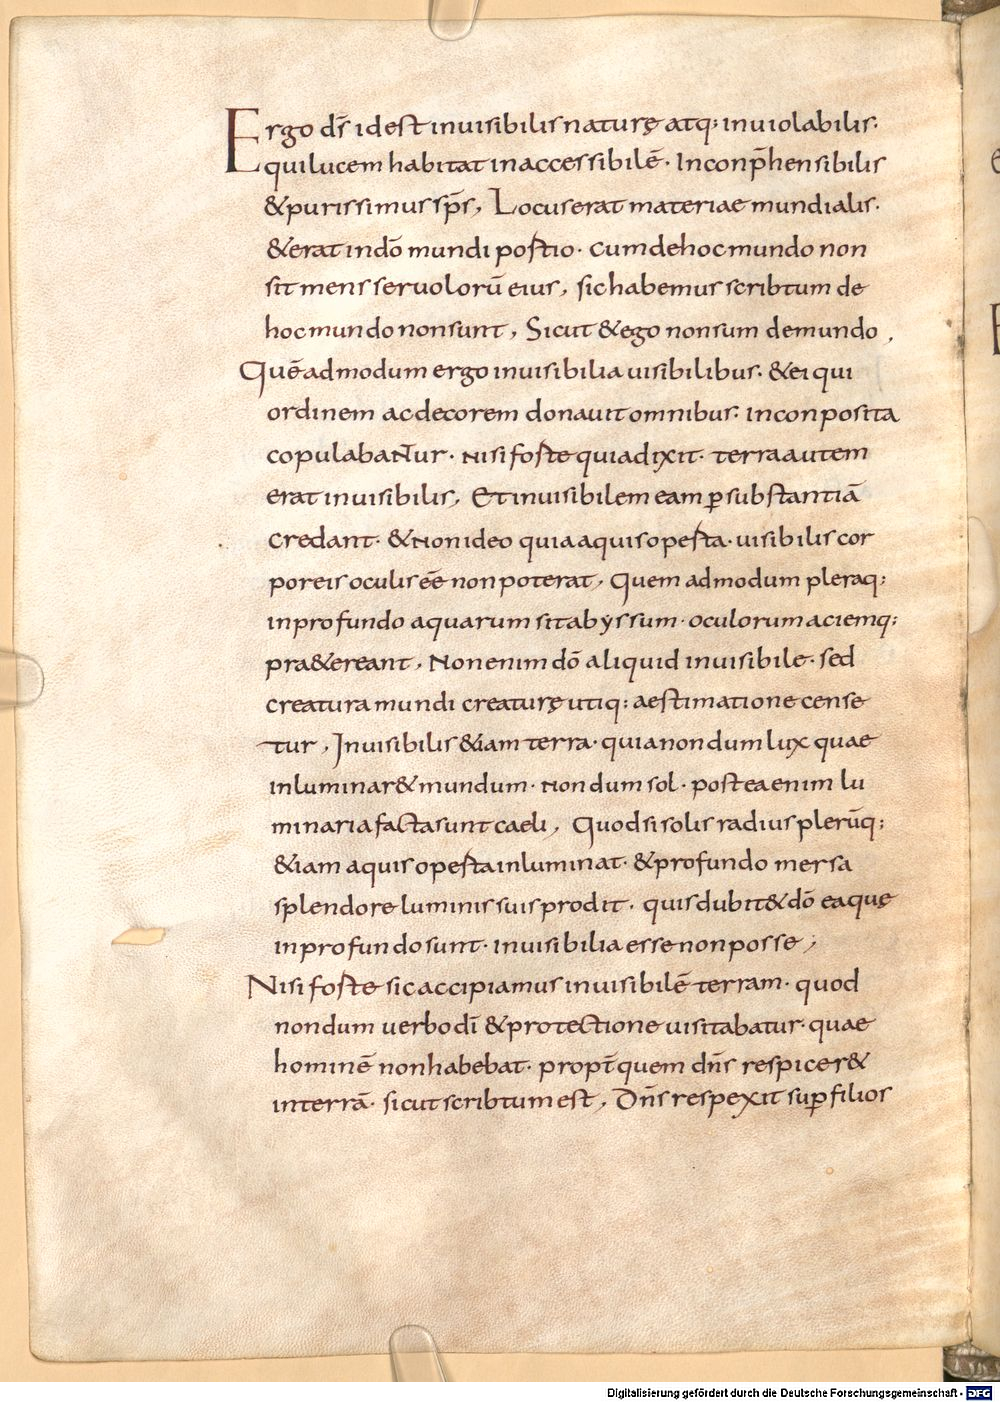 Ergo dr̄s id est inuisibilis naturę atq; inuiolabilis·
qui lucem habitat inaccessibilē· Inconp̄hensibilis
& purissimus sp̄s, Locus erat materiae mundialis·
& erat in dō mundi postio· cum de hoc mundo non
sit mens seruolorū eius, sic habemus scribtum de
hoc mundo non sunt, Sicut & ego non sum de mundo,
Quēadmodum ergo inuisibilia uisibilibus· & ei qui
ordinem ac decorem donauit omnibus· inconposita
copulabantur· nisi foste quia dixit· terra autem
erat inuisibilis, Et inuisibilem eam ꝑ substantiā
credant· & non ideo quia aquis opesta· uisibilis cor
poreis oculis eē non poterat, Quem admodum pleraq;
in profundo aquarum sit abyssum· oculorum aciemq;
pra&ereant, Non enim dō aliquid inuisibile· sed
creatura mundi creaturę utiq; aestimatione cense
tur, Inuisibilis &iam terra· quia nondum lux quae
inluminar& mundum· nondum sol· postea enim lu
minaria facta sunt caeli, Quod si solis radius plerūq;
&iam aquis opesta inluminat· & profundo mersa
splendore luminis suis prodit· quis dubit& dō ea quę
in profundo sunt· inuisibilia esse non posse,
Nisi foste sic accipiamus inuisibilē terram· quod
nondum uerbo dī & protectione uisitabatur· quae
hominē non habebat· propt̄ quem dn̄s respicer&
in terrā· sicut scribtum est, Dn̄s respexit suꝑ filios
Digitalisierung gefördert durch die Deutsche Forschungsgemeinschaft - DFG